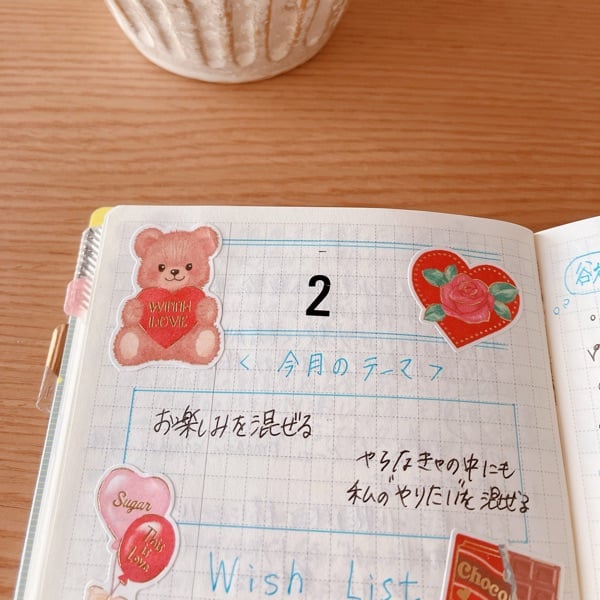 2
WITH
LOVE
< 今月のテーマ >
お楽しみを混ぜる
やらなきゃの中にも
私の"やりたい"を混ぜる
Sugar
This
is
Love
Wish List.
Choco